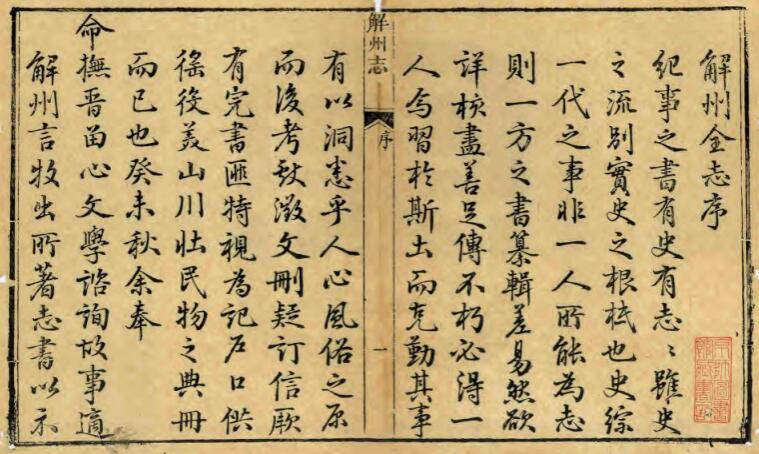 解州全志序
紀事之書有史有志〻雖史
之流別實史之根柢也史綜
一代之事非一人所能為志
則一方之書纂輯差易然欲
詳核盡善足傳不朽必得一
人焉習於斯土而克勤其事
解州志
序
一
有以洞悉乎人心風俗之原
而後考獻徵文刪疑訂信厥
有完書匪特視為記戶口供
徭役美山川壯民物之典冊
而已也癸未秋余奉
命撫晉留心文學諮詢故事適
解州言牧出所著志書以示